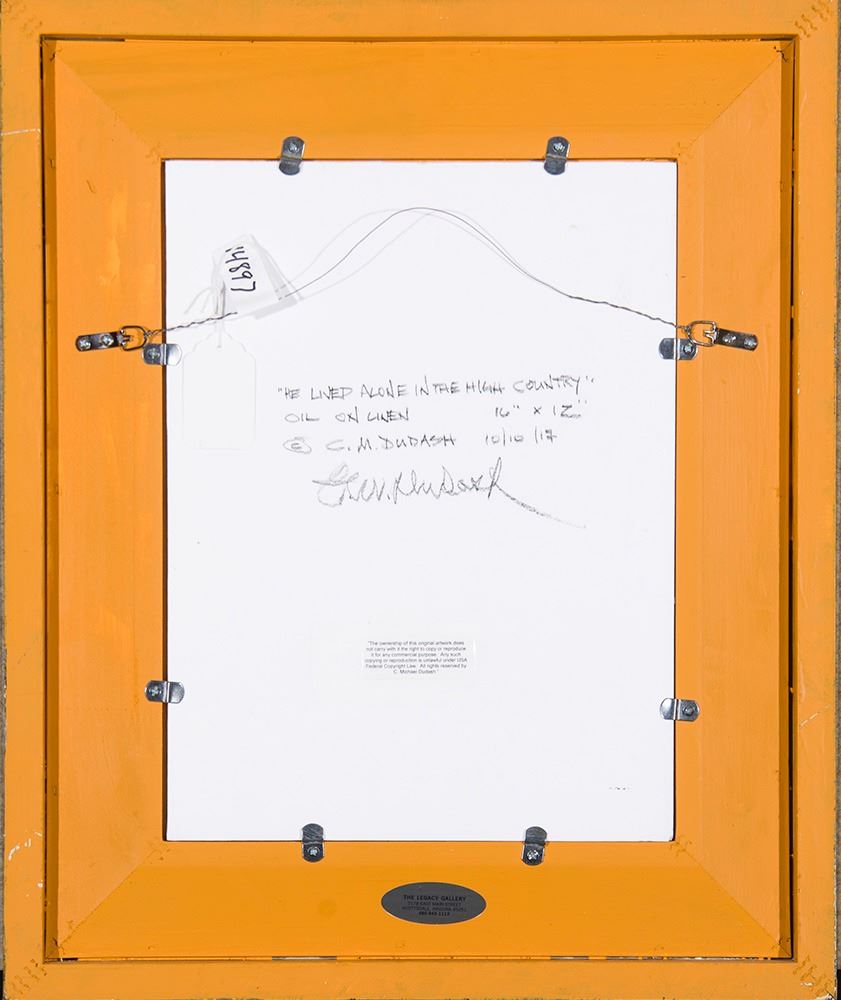 14897
"HE LIVED ALONE IN THE HIGH COUNTRY"
OIL ON LINEN 16" x 12"
© C. M. DUDASH 10/10/17
C. M. Dudash
"The ownership of this original artwork does
not carry with it the right to copy or reproduce
it for any commercial purpose. Any such
copying or reproduction is unlawful under USA
Federal Copyright Law. All rights reserved by
C. Michael Dudash"
THE LEGACY GALLERY
7178 EAST MAIN STREET
SCOTTSDALE, ARIZONA 85251
480-945-1113